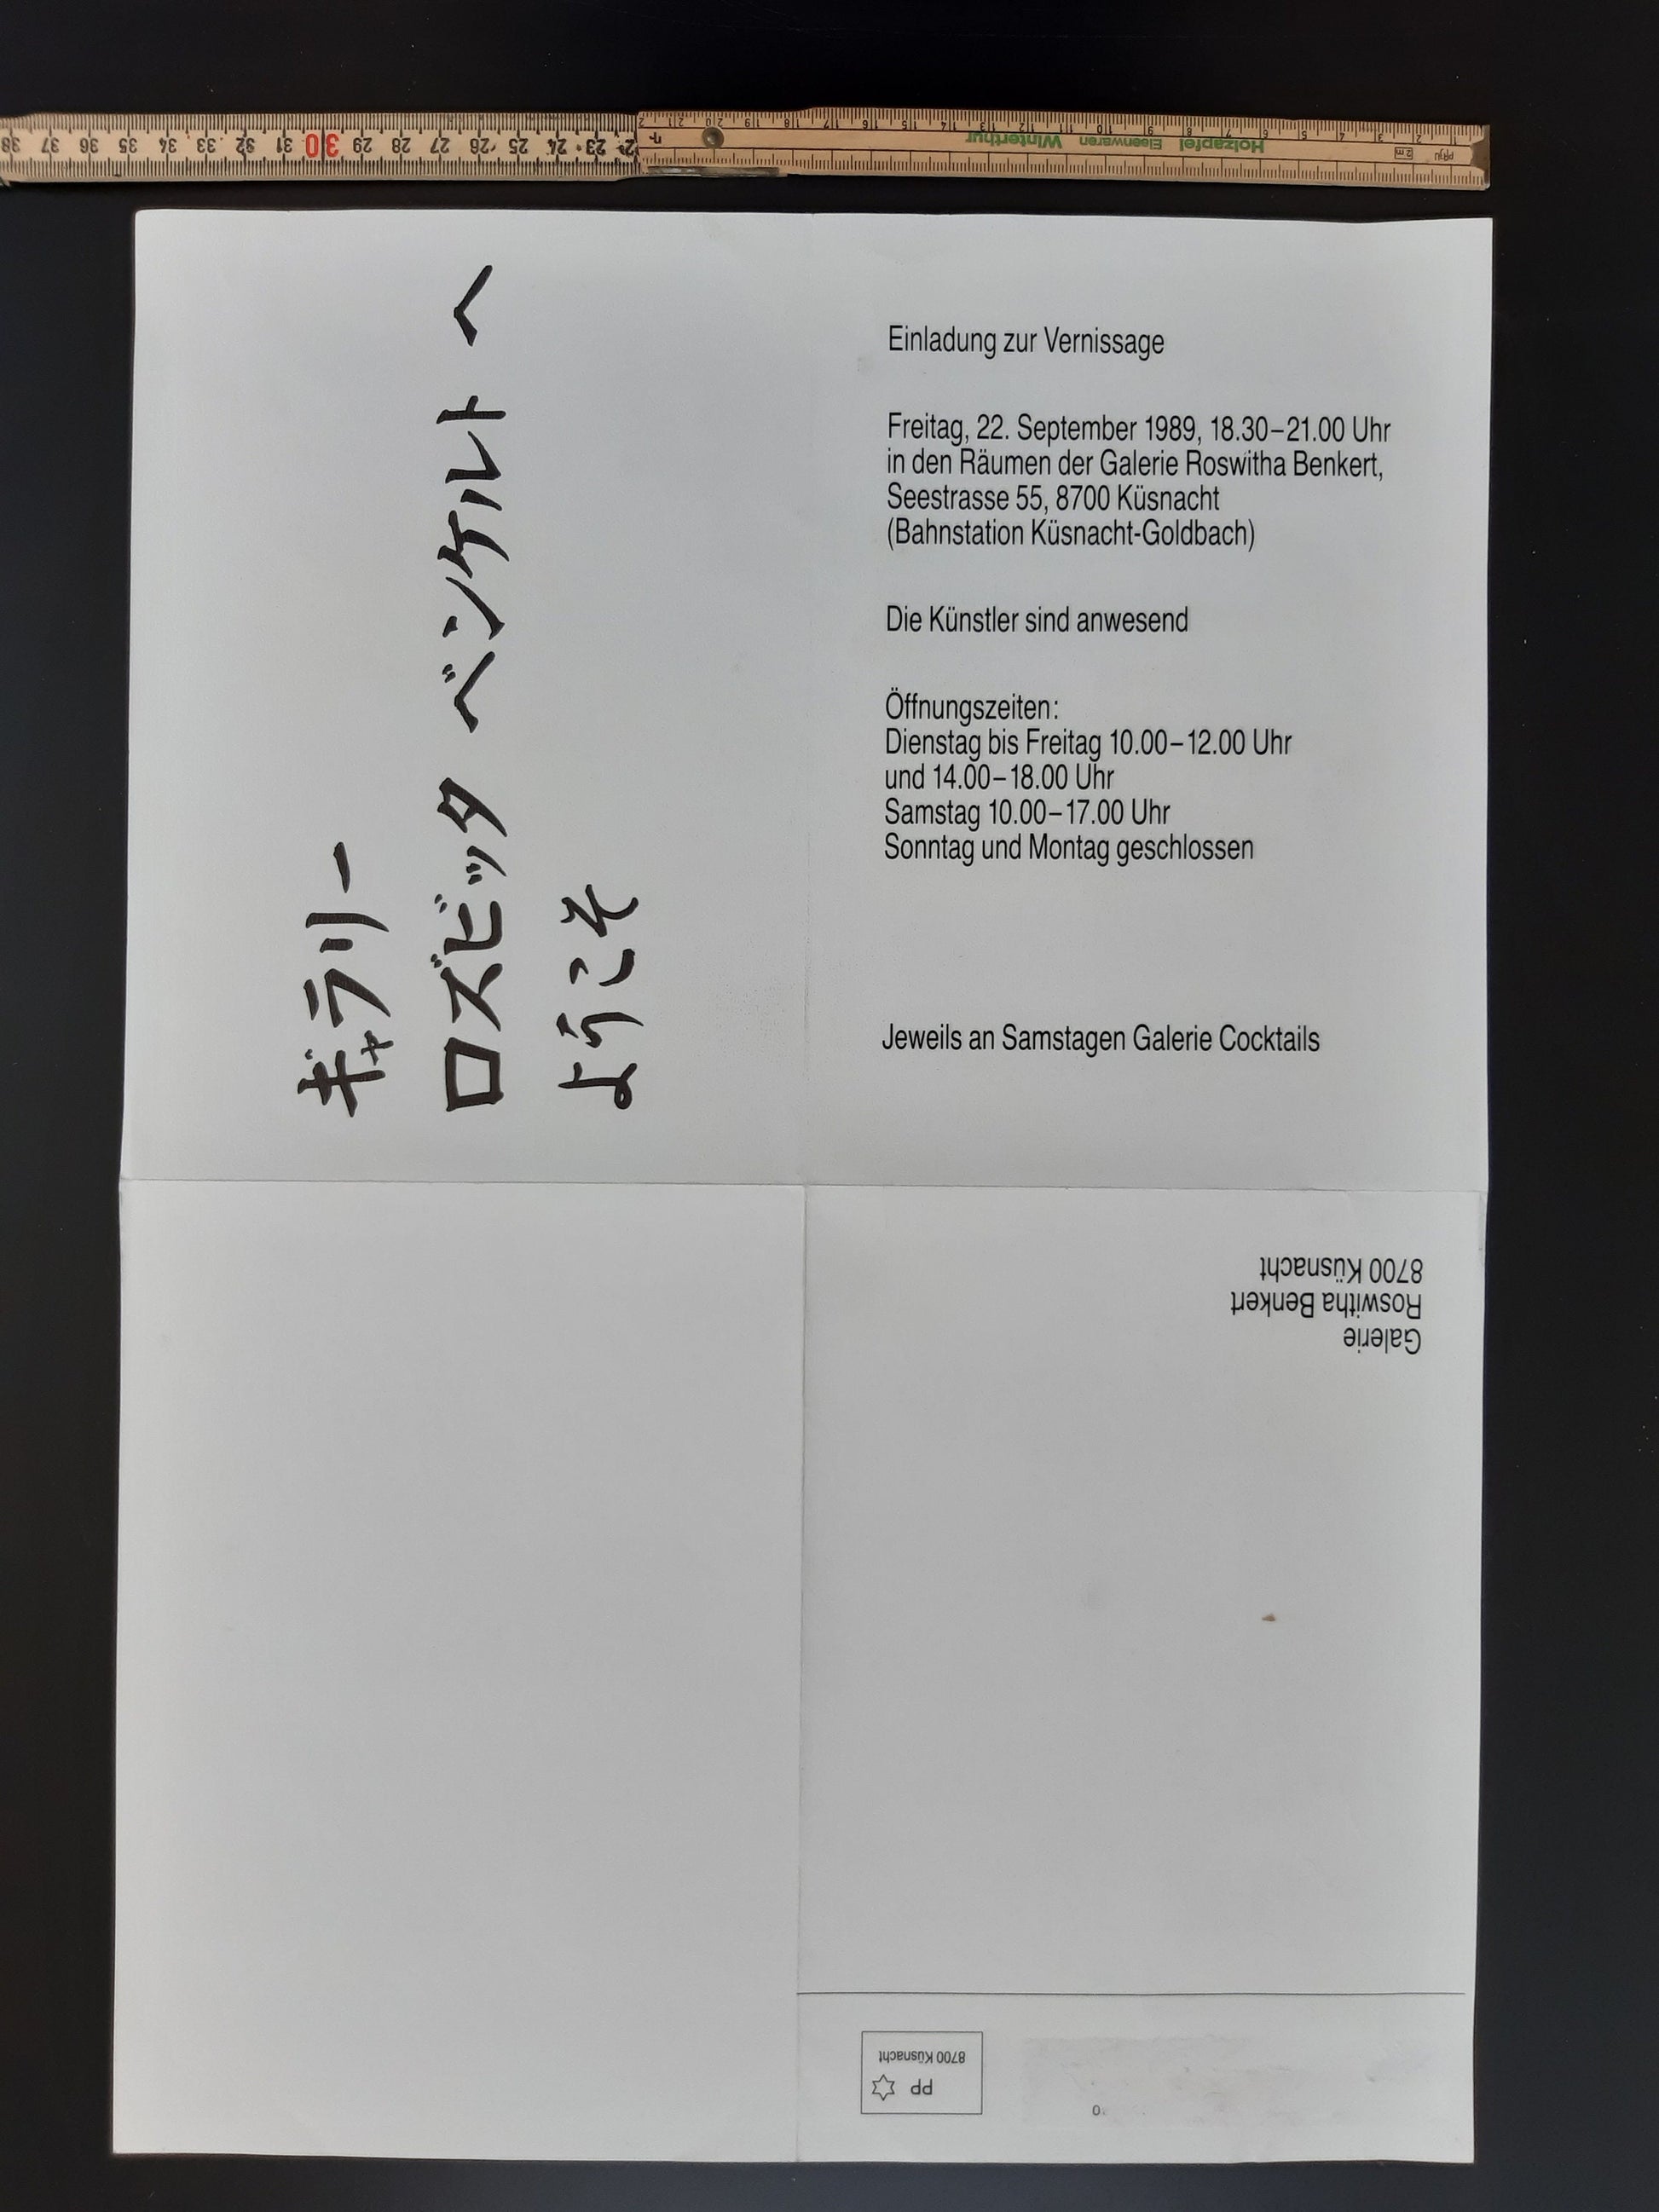 ギャラリー
ロズビッタ ベンケルト へ
ようこそ
Einladung zur Vernissage
Freitag, 22. September 1989, 18.30–21.00 Uhr
in den Räumen der Galerie Roswitha Benkert,
Seestrasse 55, 8700 Küsnacht
(Bahnstation Küsnacht-Goldbach)
Die Künstler sind anwesend
Öffnungszeiten:
Dienstag bis Freitag 10.00–12.00 Uhr
und 14.00–18.00 Uhr
Samstag 10.00–17.00 Uhr
Sonntag und Montag geschlossen
Jeweils an Samstagen Galerie Cocktails
Galerie
Roswitha Benkert
8700 Küsnacht
PP
8700 Küsnacht
Holzapfel Eisenwaren Winterthur
2m
1 2 3 4 5 6 7 8 9 10 11 12 13 14 15 16 17 18 19 20 21
23 24 25 26 27 28 29 30 31 32 33 34 35 36 37 38